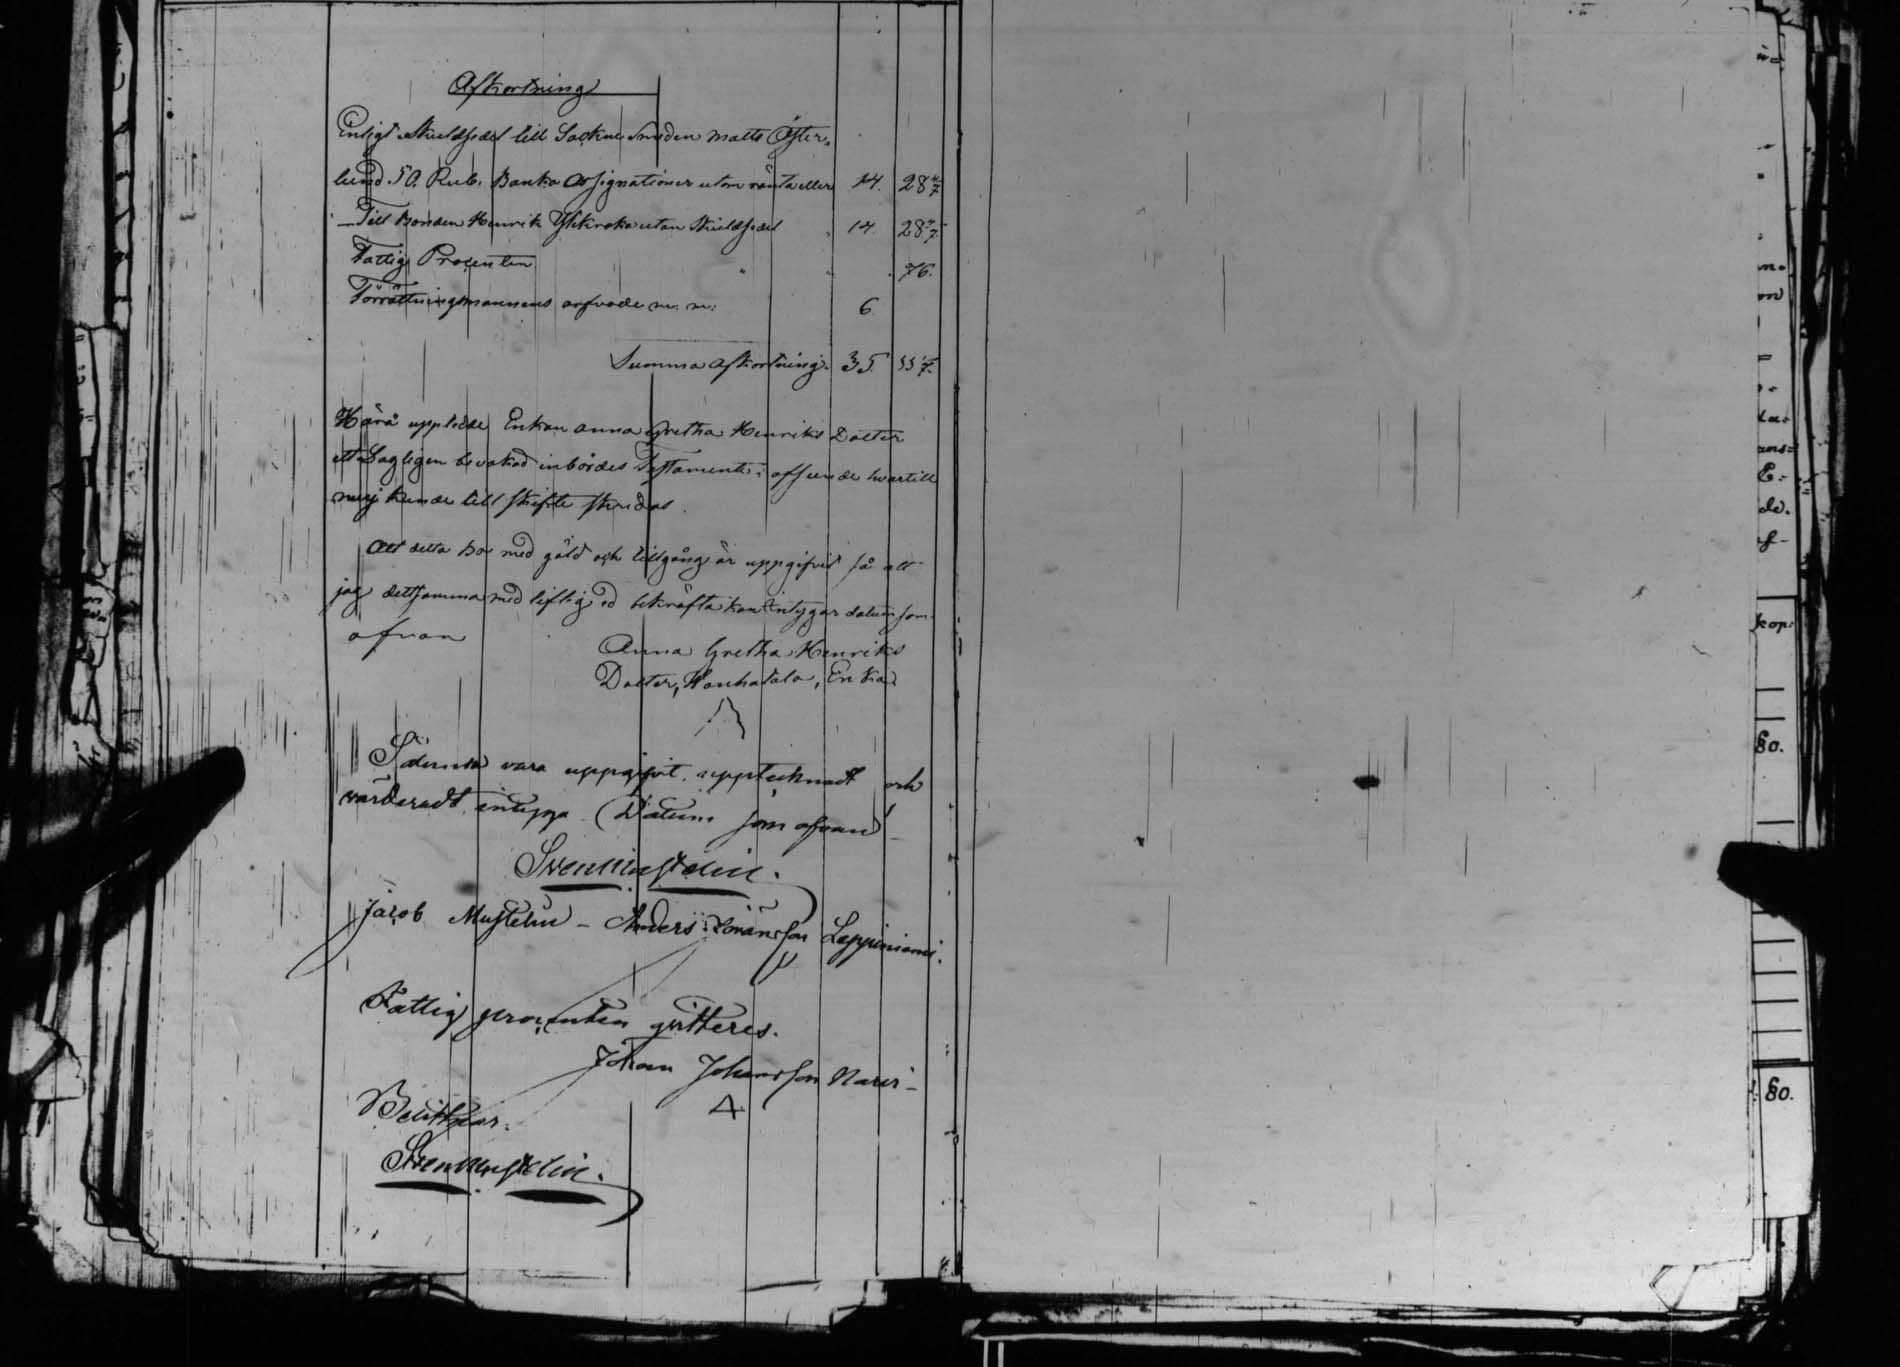 Afkortning
Enligt Skuldsedel till Sockne Smeden Matts Öster-
lund 50. Rub. Banko Assignationer utom ränta eller 14. 28 4/7
— Till Bonden Henrik Ylikroka utan Skuldsedel 14. 28 4/7
Fattig Procenten " " 76.
Förrättningsmannens arfvode m. m. 6.
Summa Afkortning. 35. 33 1/7.
Härå uppledde Enkan Anna Gretha Henriks Dotter
ett Lagligen bevakad inbördes Testamente; i afseende hvartill
nu ej kunde till skifte skridas.
Att detta Bo med gäld och tillgång är uppgifvit så att
jag detsamma med liflig ed bekräfta kan intygar datum som
ofvan
Anna Gretha Henriks
Dotter, Enka
Sålunda vara uppgifvit, upptecknadt och
värderadt, intyga. (Datum som ofvan)
Sven Mustelin.
Jacob Mustelin — Anders Göransson Leppiniemi.
Fattig procenten qvitteres.
Johan Johansson
Bevittnar.
Sven Mustelin.
kop:
80.
80.